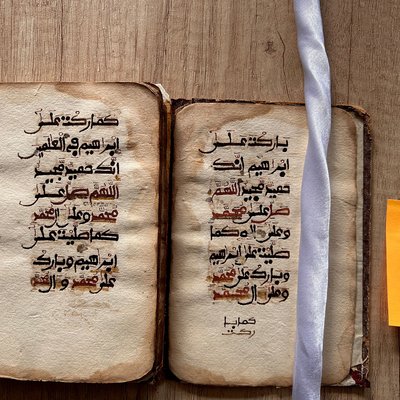 باركت على
ابراهيم انك
حميد مجيد اللهم
صل على محمد
وعلى اله كما
صليت على ابراهيم
وبارك على محمد
وعلى ال محمد
كما با
ركت
كما باركت على
ابراهيم في العلمين
انك حميد مجيد
اللهم صل على
محمد وعلى ال محمد
كما صليت على
ابراهيم وبارك
على محمد و ال محمد